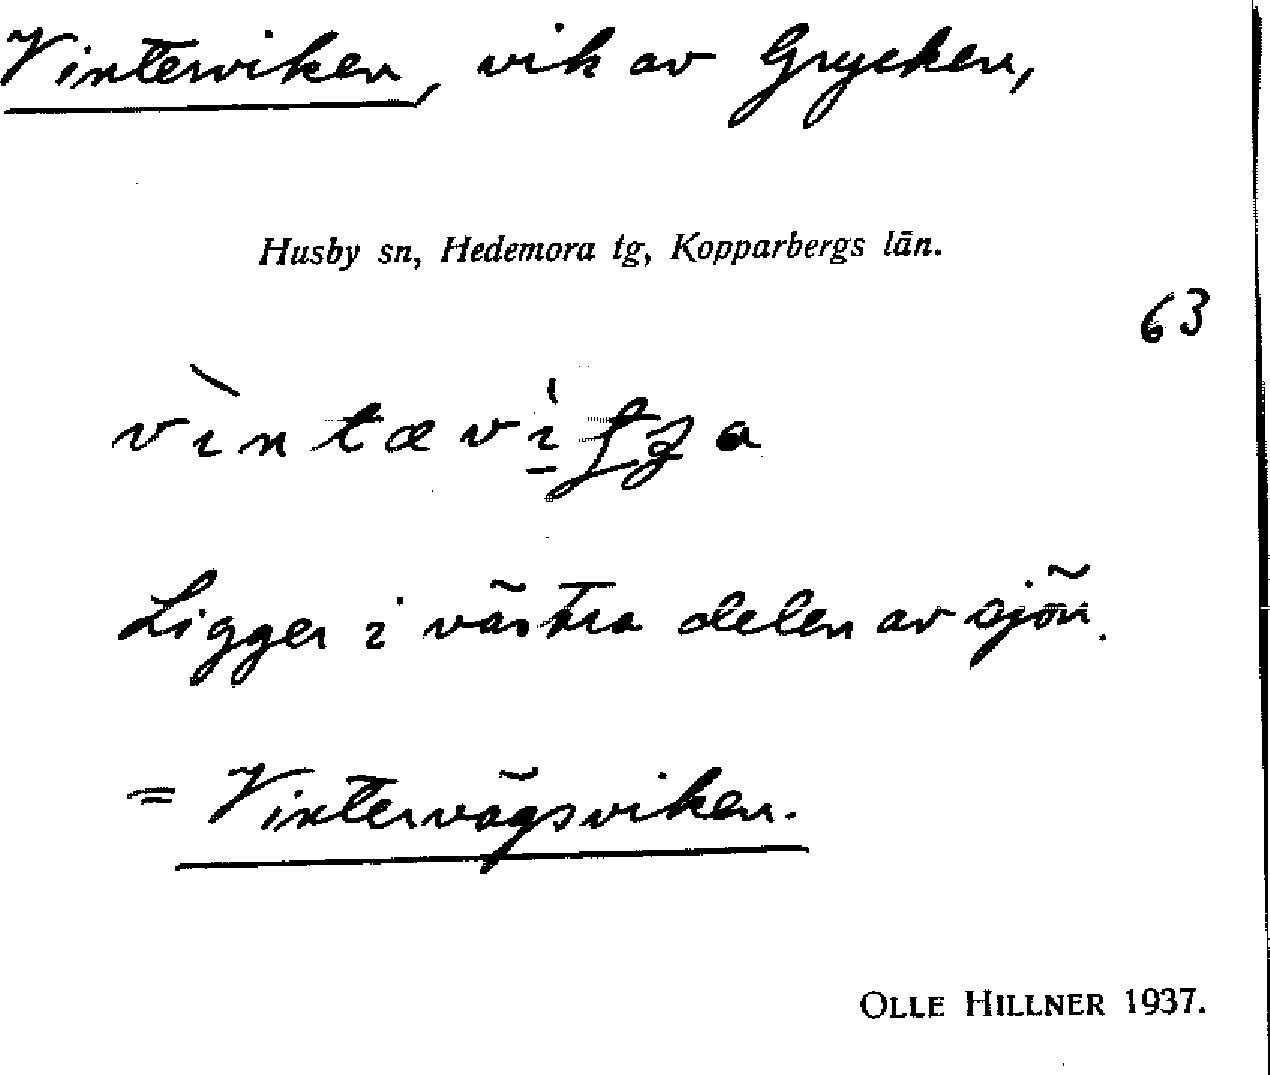 Vinterviken, vik av Grycken,
Husby sn, Hedemora tg, Kopparbergs län.
63
Ligger i västra delen av sjön.
= Vintervägsviken.
OLLE HILLNER 1937.